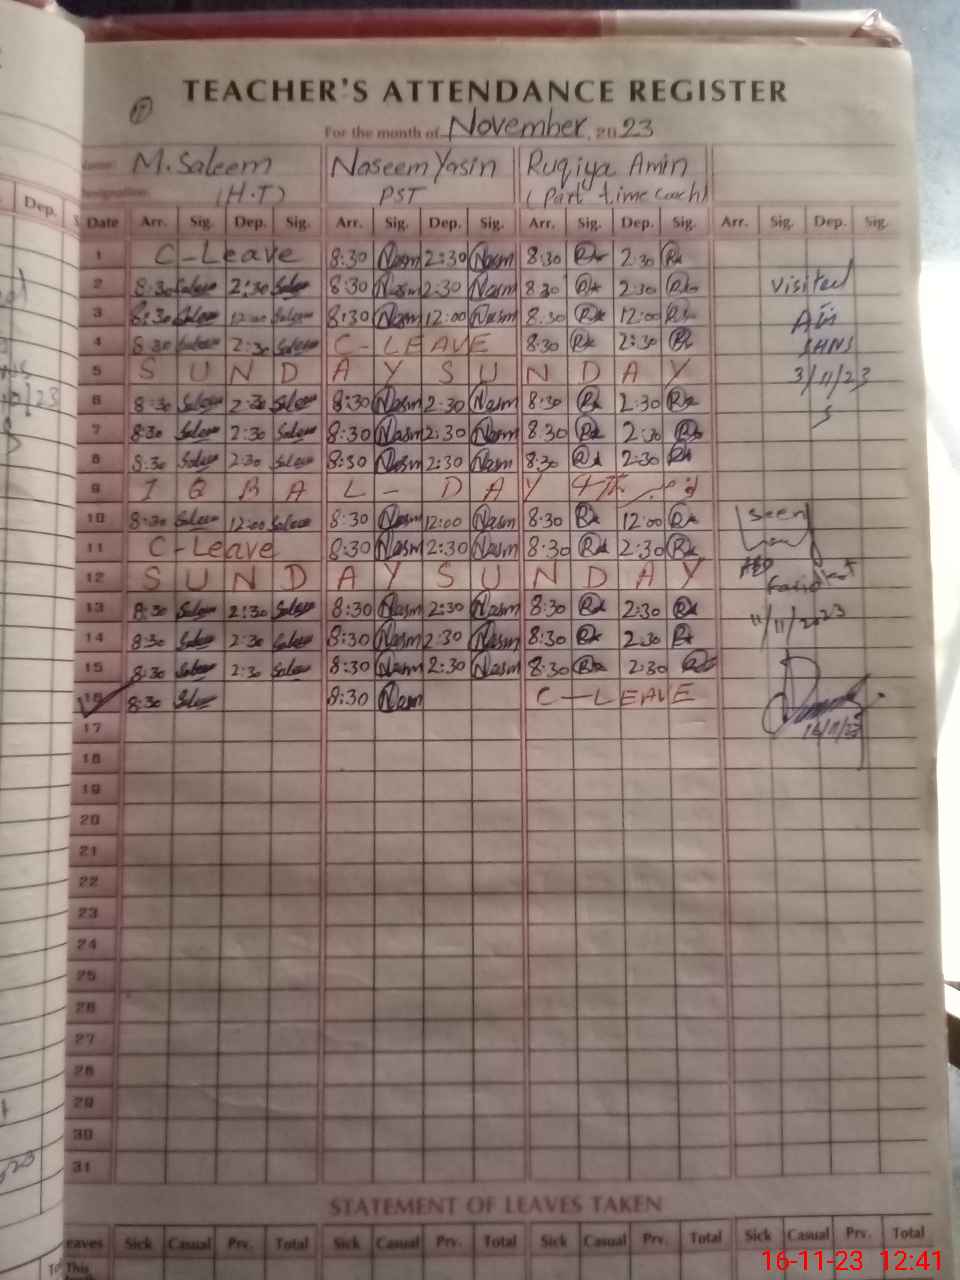 TEACHER'S ATTENDANCE REGISTER
For the month of November, 2023
Name: M. Saleem Naseem Yasin Ruqiya Amin
Designation: (H.T) PST (Part time coach)
Date Arr. Sig. Dep. Sig. Arr. Sig. Dep. Sig. Arr. Sig. Dep. Sig. Arr. Sig. Dep. Sig.
1 C-Leave 8:30 Nasm 2:30 Nasm 8:30 2:30
2 8:30 Saleem 2:30 Saleem 8:30 Nasm 2:30 Nasm 8:30 2:30 visited
3 8:30 Saleem 12:00 Saleem 8:30 Nasm 12:00 Nasm 8:30 12:00
4 8:30 Saleem 2:30 Saleem C-LEAVE 8:30 2:30
5 SUNDAY SUNDAY 3/11/23
6 8:30 Saleem 2:30 Saleem 8:30 Nasm 2:30 Nasm 8:30 2:30
7 8:30 Saleem 2:30 Saleem 8:30 Nasm 2:30 Nasm 8:30 2:30
8 8:30 Saleem 2:30 Saleem 8:30 Nasm 2:30 Nasm 8:30 2:30
9 IQBAL-DAY
10 8:30 Saleem 12:00 Saleem 8:30 Nasm 12:00 Nasm 8:30 12:00 seen
11 C-Leave 8:30 Nasm 2:30 Nasm 8:30 2:30
12 SUNDAY SUNDAY
13 8:30 Saleem 2:30 Saleem 8:30 Nasm 2:30 Nasm 8:30 2:30 11/11/2023
14 8:30 Saleem 2:30 Saleem 8:30 Nasm 2:30 Nasm 8:30 2:30
15 8:30 Saleem 2:30 Saleem 8:30 Nasm 2:30 Nasm 8:30 2:30
16 8:30 Saleem 8:30 Nasm C-LEAVE
17 16/11/23
18
19
20
21
22
23
24
25
26
27
28
29
30
31
STATEMENT OF LEAVES TAKEN
eaves Sick Casual Prv. Total Sick Casual Prv. Total Sick Casual Prv. Total Sick Casual Prv. Total
This
16-11-23 12:41